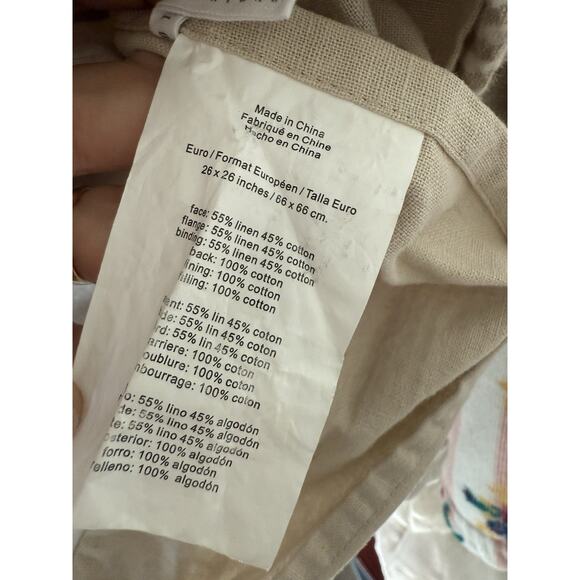 Made in China
Fabriqué en Chine
Hecho en China
Euro / Format Européen / Talla Euro
26 x 26 inches / 66 x 66 cm.
face: 55% linen 45% cotton
flange: 55% linen 45% cotton
binding: 55% linen 45% cotton
back: 100% cotton
lining: 100% cotton
filling: 100% cotton
ent: 55% lin 45% coton
de: 55% lin 45% coton
rd: 55% lin 45% coton
arriere: 100% coton
oublure: 100% coton
mbourrage: 100% coton
o: 55% lino 45% algodón
de: 55% lino 45% algodón
te: 55% lino 45% algodón
osterior: 100% algodón
forro: 100% algodón
elleno: 100% algodón